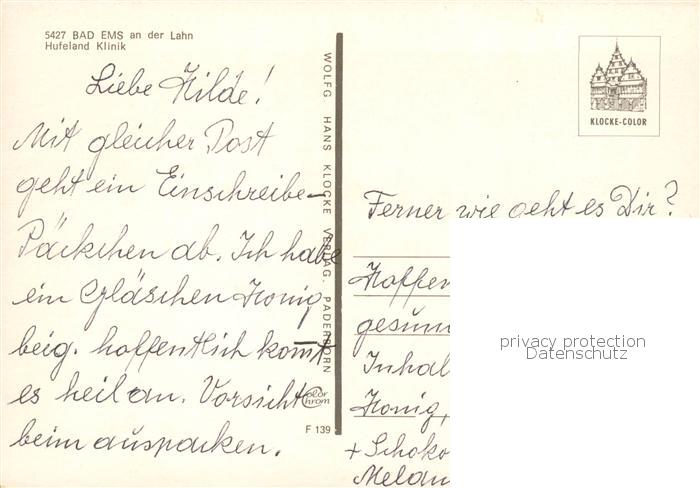 5427 BAD EMS an der Lahn
Hufeland Klinik
Liebe Hilde!
Mit gleicher Post
geht ein Einschreibe-
Päckchen ab. Ich habe
ein Gläschen Honig
beig. hoffentlich komt
es heil an. Vorsicht
beim auspacken.
WOLFG HANS KLOCKE VERLAG. PADERBORN
Color
Chrom
F 139
KLOCKE-COLOR
Ferner wie geht es Dir?
Hoffen
gesun
Inhal
Honig,
+ Schoko
Melan
privacy protection
Datenschutz